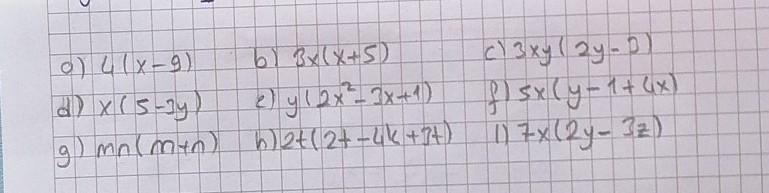 a) 4(x-9) b) 3x(x+5) c) 3xy(2y-
d) x(5-3y) e) y(2x²-3x+1) f) 5x(y-1+4x)
g) mn(m+n) h) 2t(2t-4k+3t) i) 7x(2y-3z)